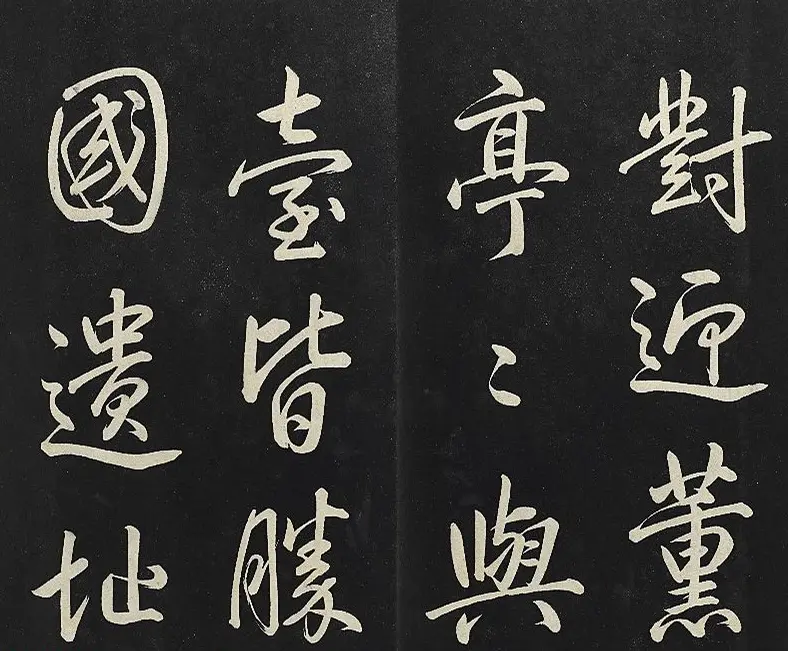 對迎薰
亭〻與
臺皆勝
國遺址